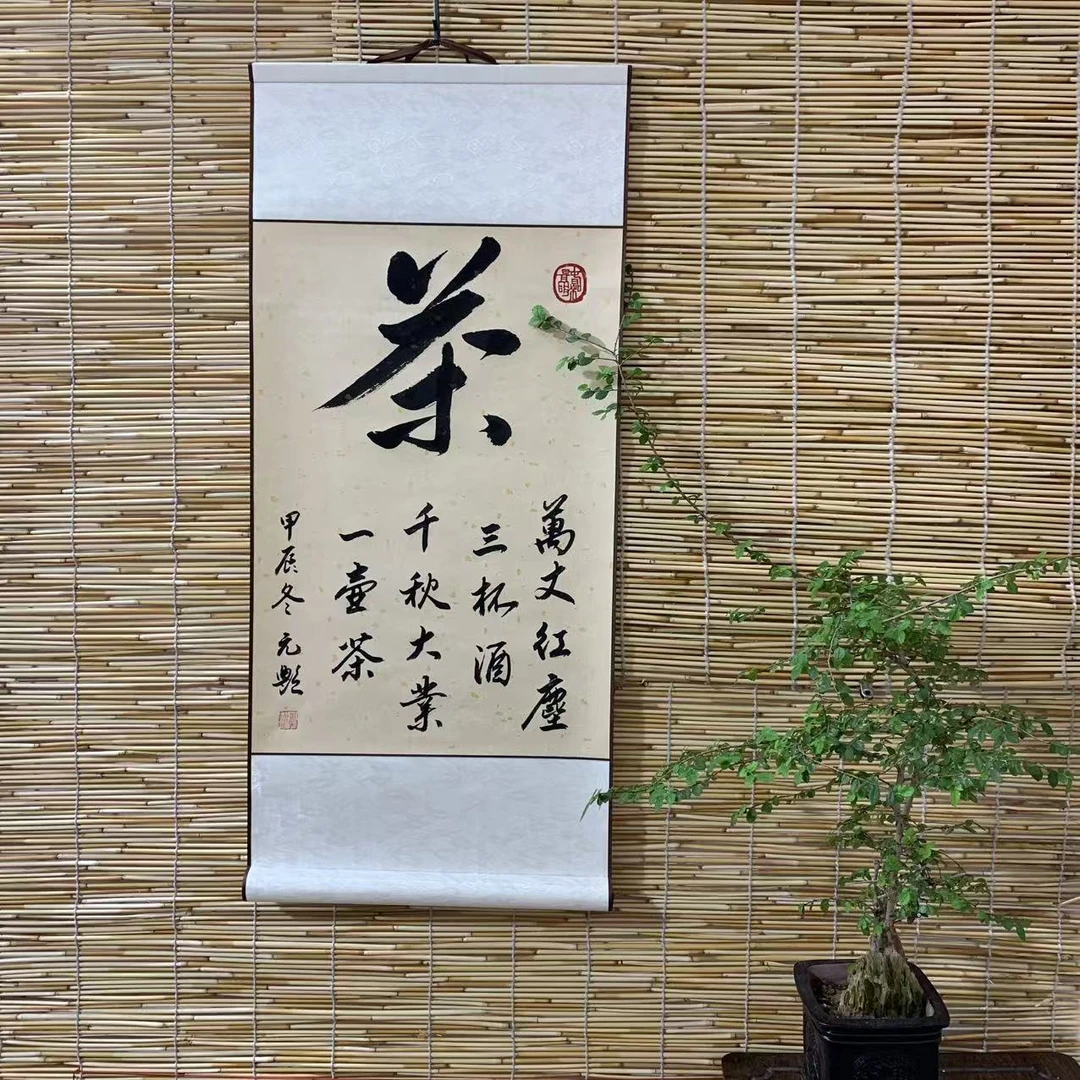 茶
萬丈紅塵
三杯酒
千秋大業
一壺茶
甲辰冬元艷